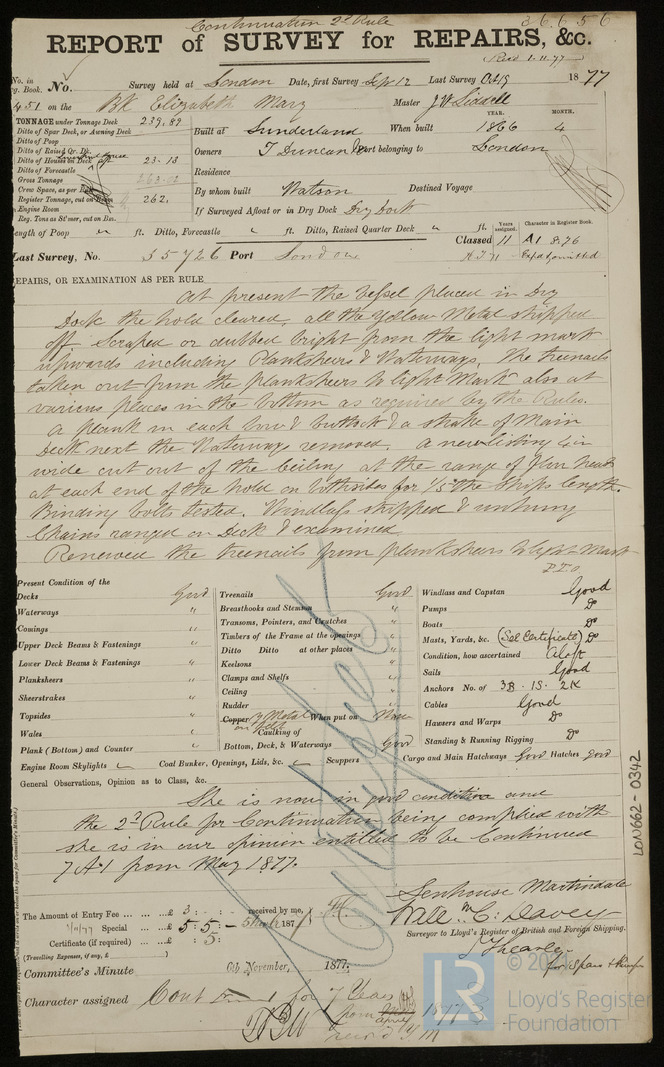 Continuation 2d Rule
36656
REPORT of SURVEY for REPAIRS, &c.
Recd 1.11.77
No. in Reg. Book. No. Survey held at London Date, first Survey Sep 12 Last Survey Oct 19 1877
451 on the Bk Elizabeth Mary Master J W Siddell
TONNAGE under Tonnage Deck 239.89
Ditto of Spar Deck, or Awning Deck
Ditto of Poop
Ditto of Raised Qr. Dk.
Ditto of Houses on Deck 23.13
Ditto of Forecastle
Gross Tonnage 263.02
Crew Space, as per
Register Tonnage, cut on Beam 262.
Engine Room
Reg. Tons as St'mer, cut on Bm.
YEAR. MONTH.
Built at Sunderland When built 1866 4
Owners T Duncan Port belonging to London
Residence
By whom built Watson Destined Voyage
If Surveyed Afloat or in Dry Dock Dry Dock
Length of Poop ft. Ditto, Forecastle ft. Ditto, Raised Quarter Deck ft.
Years assigned. Character in Register Book.
Classed 11 A1 8.76
Last Survey, No. 35726 Port London
REPAIRS, OR EXAMINATION AS PER RULE
At present the Vessel placed in Dry
Dock the hold cleared, all the Yellow Metal stripped
off scraped or dubbed bright from the light mark
upwards including Planksheers & Waterways. The treenails
taken out from the planksheers to light Mark also at
various places in the bottom as required by the Rules.
A plank in each bow & buttock & a strake of Main
Deck next the Waterway removed. A new listing 4 in
wide cut out of the ceiling at the range of floor heads
at each end of the hold on both sides for 1/5 the ships length.
Binding bolts tested. Windlass stripped & unhung
Chains ranged on Deck & examined
Renewed the treenails from planksheers to light Mark
P.T.O.
Present Condition of the
Decks Good
Waterways "
Comings "
Upper Deck Beams & Fastenings "
Lower Deck Beams & Fastenings "
Planksheers "
Sheerstrakes "
Topsides "
Wales "
Plank (Bottom) and Counter "
Engine Room Skylights
Treenails Good
Breasthooks and Stemson "
Transoms, Pointers, and Crutches "
Timbers of the Frame at the openings "
Ditto Ditto at other places "
Keelsons "
Clamps and Shelfs "
Ceiling "
Rudder "
Copper Y Metal on felt When put on Now
Caulking of
Bottom, Deck, & Waterways Good
Coal Bunker, Openings, Lids, &c. Scuppers
Windlass and Capstan Good
Pumps Do
Boats Do
Masts, Yards, &c. (See Certificate) Do
Condition, how ascertained Aloft
Sails Good
Anchors No. of 3B. 1S. 2K
Cables Good
Hawsers and Warps Do
Standing & Running Rigging Do
Cargo and Main Hatchways Good Hatches Good
General Observations, Opinion as to Class, &c.
She is now in good condition and
the 2d Rule for Continuation being complied with
she is in our opinion entitled to be Continued
7 A1 from May 1877.
Senhouse Martindale
Will m C. Davey
Surveyor to Lloyd's Register of British and Foreign Shipping.
The Amount of Entry Fee ... £ 3 : : received by me,
Special ... £ 5 : 5 : 187
Certificate (if required) ... : 5 :
(Travelling Expenses, if any, £ )
Committee's Minute 6th November, 1877.
Character assigned Cont for 7 Years
from 1877
LON662-0342
LR
© 2021
Lloyd's Register
Foundation